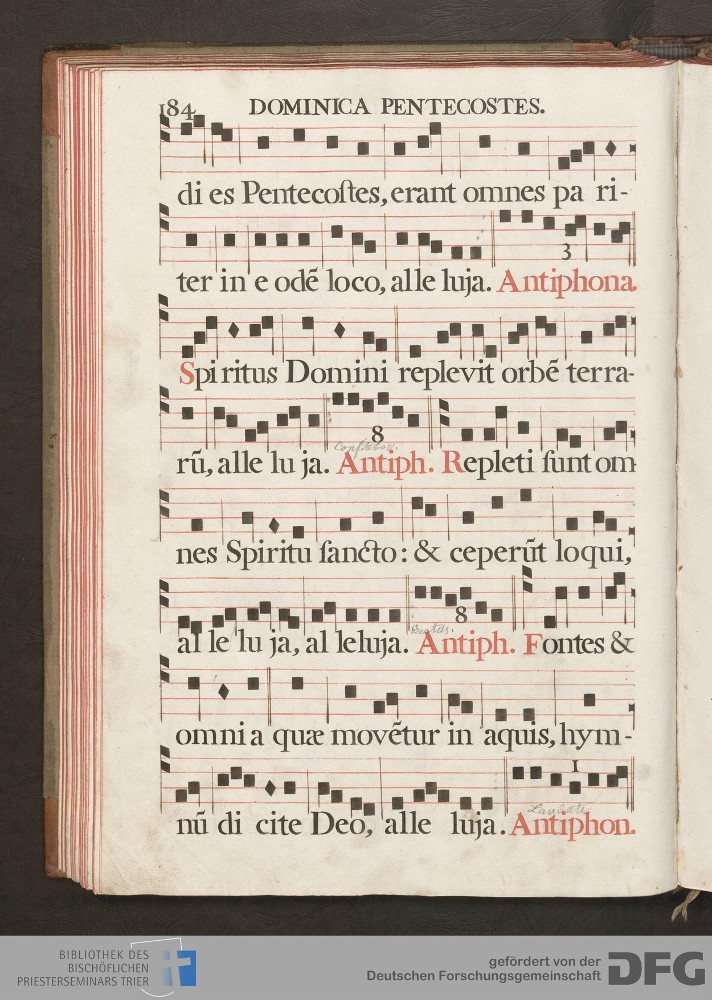 184 DOMINICA PENTECOSTES.
di es Pentecoſtes, erant omnes pa ri-
ter in e odē loco, alle luja. Antiphona.
3
Spiritus Domini replevit orbē terra-
rū, alle lu ja. Antiph. Repleti ſunt om
8
nes Spiritu ſancto: & ceperūt loqui,
al le lu ja, al leluja. Antiph. Fontes &
8
omnia quæ movētur in aquis, hym-
nū di cite Deo, alle luja. Antiphon.
1
BIBLIOTHEK DES
BISCHÖFLICHEN
PRIESTERSEMINARS TRIER
gefördert von der
Deutschen Forschungsgemeinschaft
DFG